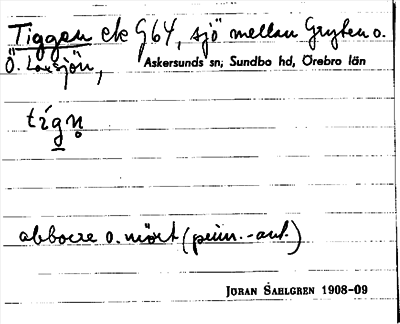 Tiggen ek G64, sjö mellan Gryten o.
Ö. Laxsjön,
Askersunds sn, Sundbo hd, Örebro län
tígn̥
abborre o. mört (
JÖRAN SAHLGREN 1908-09